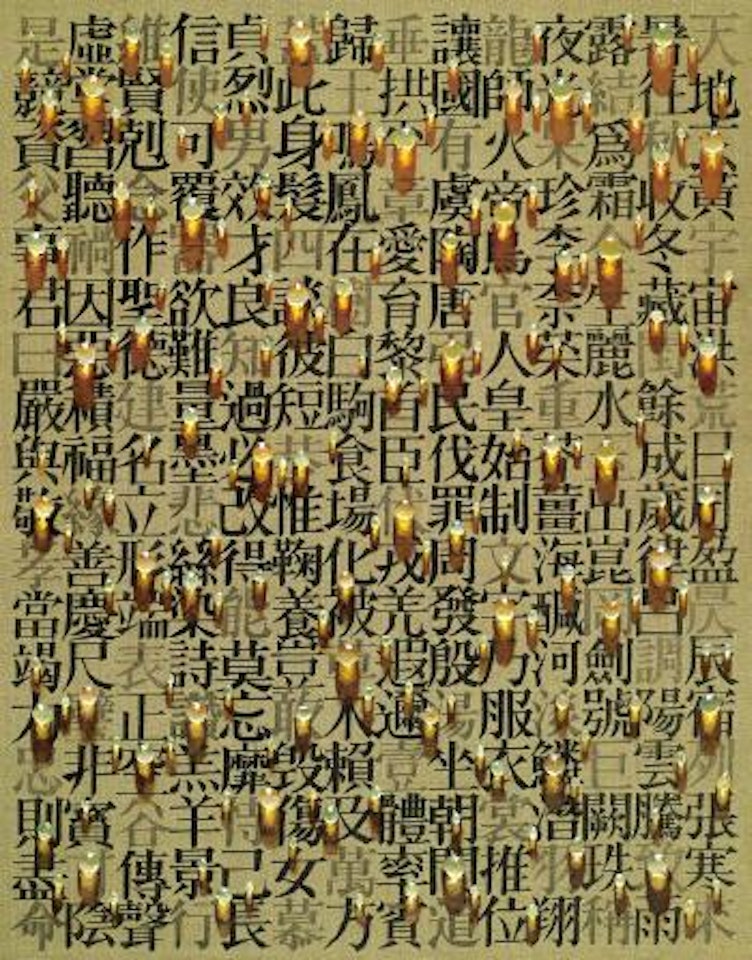 天地玄黃宇宙洪荒日月盈昃辰宿列張寒來
暑往秋收冬藏閏餘成歲律呂調陽雲騰致雨
露結爲霜金生麗水玉出崑岡劍號巨闕珠稱
夜光果珍李柰菜重芥薑海鹹河淡鱗潛羽翔
龍師火帝鳥官人皇始制文字乃服衣裳推位
讓國有虞陶唐弔民伐罪周發殷湯坐朝問道
垂拱平章愛育黎首臣伏戎羌遐邇壹體率賓
歸王鳴鳳在罔白駒食場化被草木賴及萬方
蓋此身髮四談彼短恭惟鞠養豈敢毀傷女慕
貞烈男效才良知過必改得能莫忘靡恃己長
信使可覆器欲難量墨悲絲染詩讚羔羊景行
維賢剋念作聖德建名立形端表正空谷傳聲
虛堂習聽禍因惡積福緣善慶尺璧非寶寸陰
是競資父事君曰嚴與敬孝當竭力忠則盡命